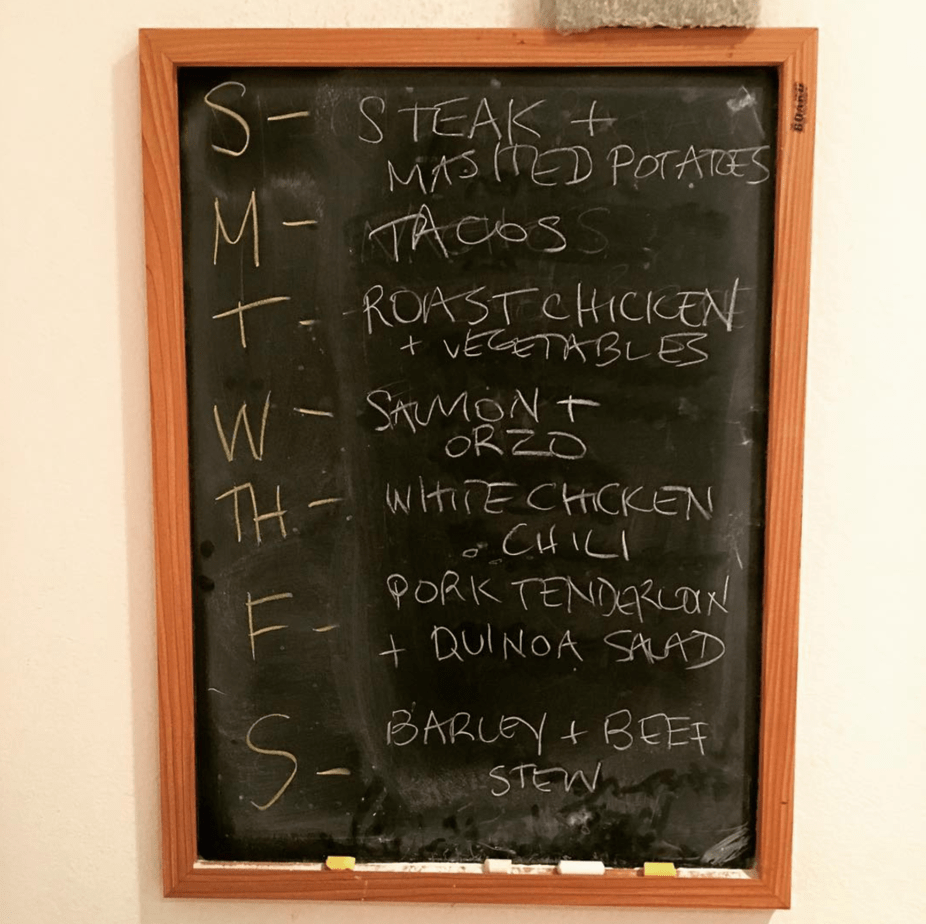 S - STEAK +
MASHED POTATOES
M - TACOS
T - ROAST CHICKEN
+ VEGETABLES
W - SALMON +
ORZO
TH - WHITE CHICKEN
CHILI
F - PORK TENDERLOIN
+ QUINOA SALAD
S - BARLEY + BEEF
STEW